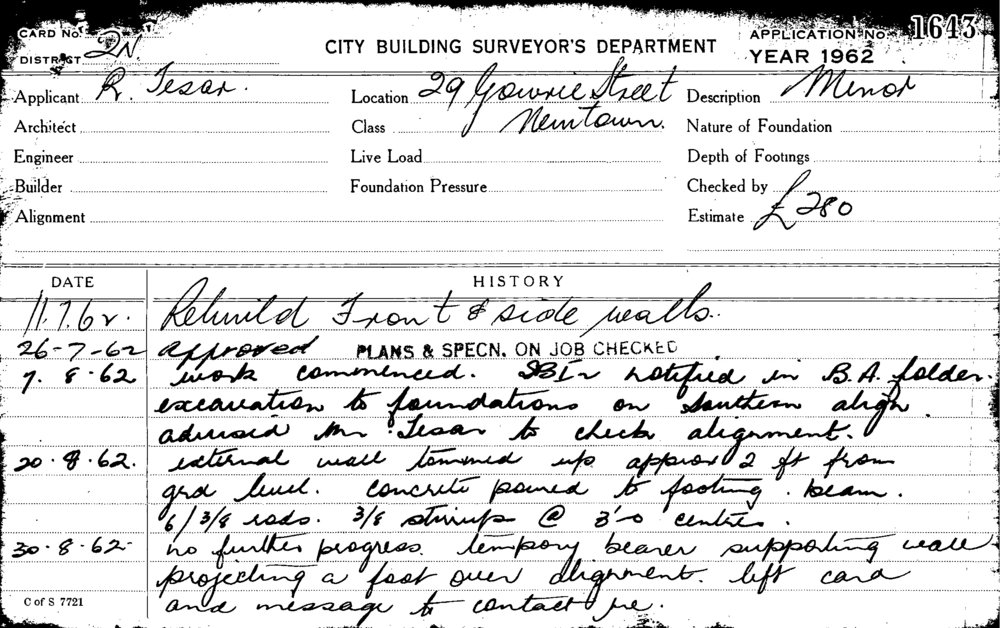 CARD No. APPLICATION No. 1643
DISTRICT 2N. CITY BUILDING SURVEYOR'S DEPARTMENT YEAR 1962
Applicant R. Tesar. Location 29 Gowrie Street Description Minor
Architect Class Newtown. Nature of Foundation
Engineer Live Load Depth of Footings
Builder Foundation Pressure Checked by
Alignment Estimate £280
DATE HISTORY
11.7.62. Rebuild Front & side walls.
26-7-62 approved PLANS & SPECN. ON JOB CHECKED
7. 8. 62 work commenced. notified in B.A. folder.
excavation to foundations on Southern align.
advised Mr. Tesar to check alignment.
20. 8. 62. external wall tommed up approx 2 ft from
grd level. concrete poured to footing. beam.
6/3/8 rods. 3/8 stirrups @ 3'-0 centres.
30. 8. 62- no further progress. tempory bearer supporting wall
projecting a foot over alignment. left card
C of S 7721 and message to contact me.